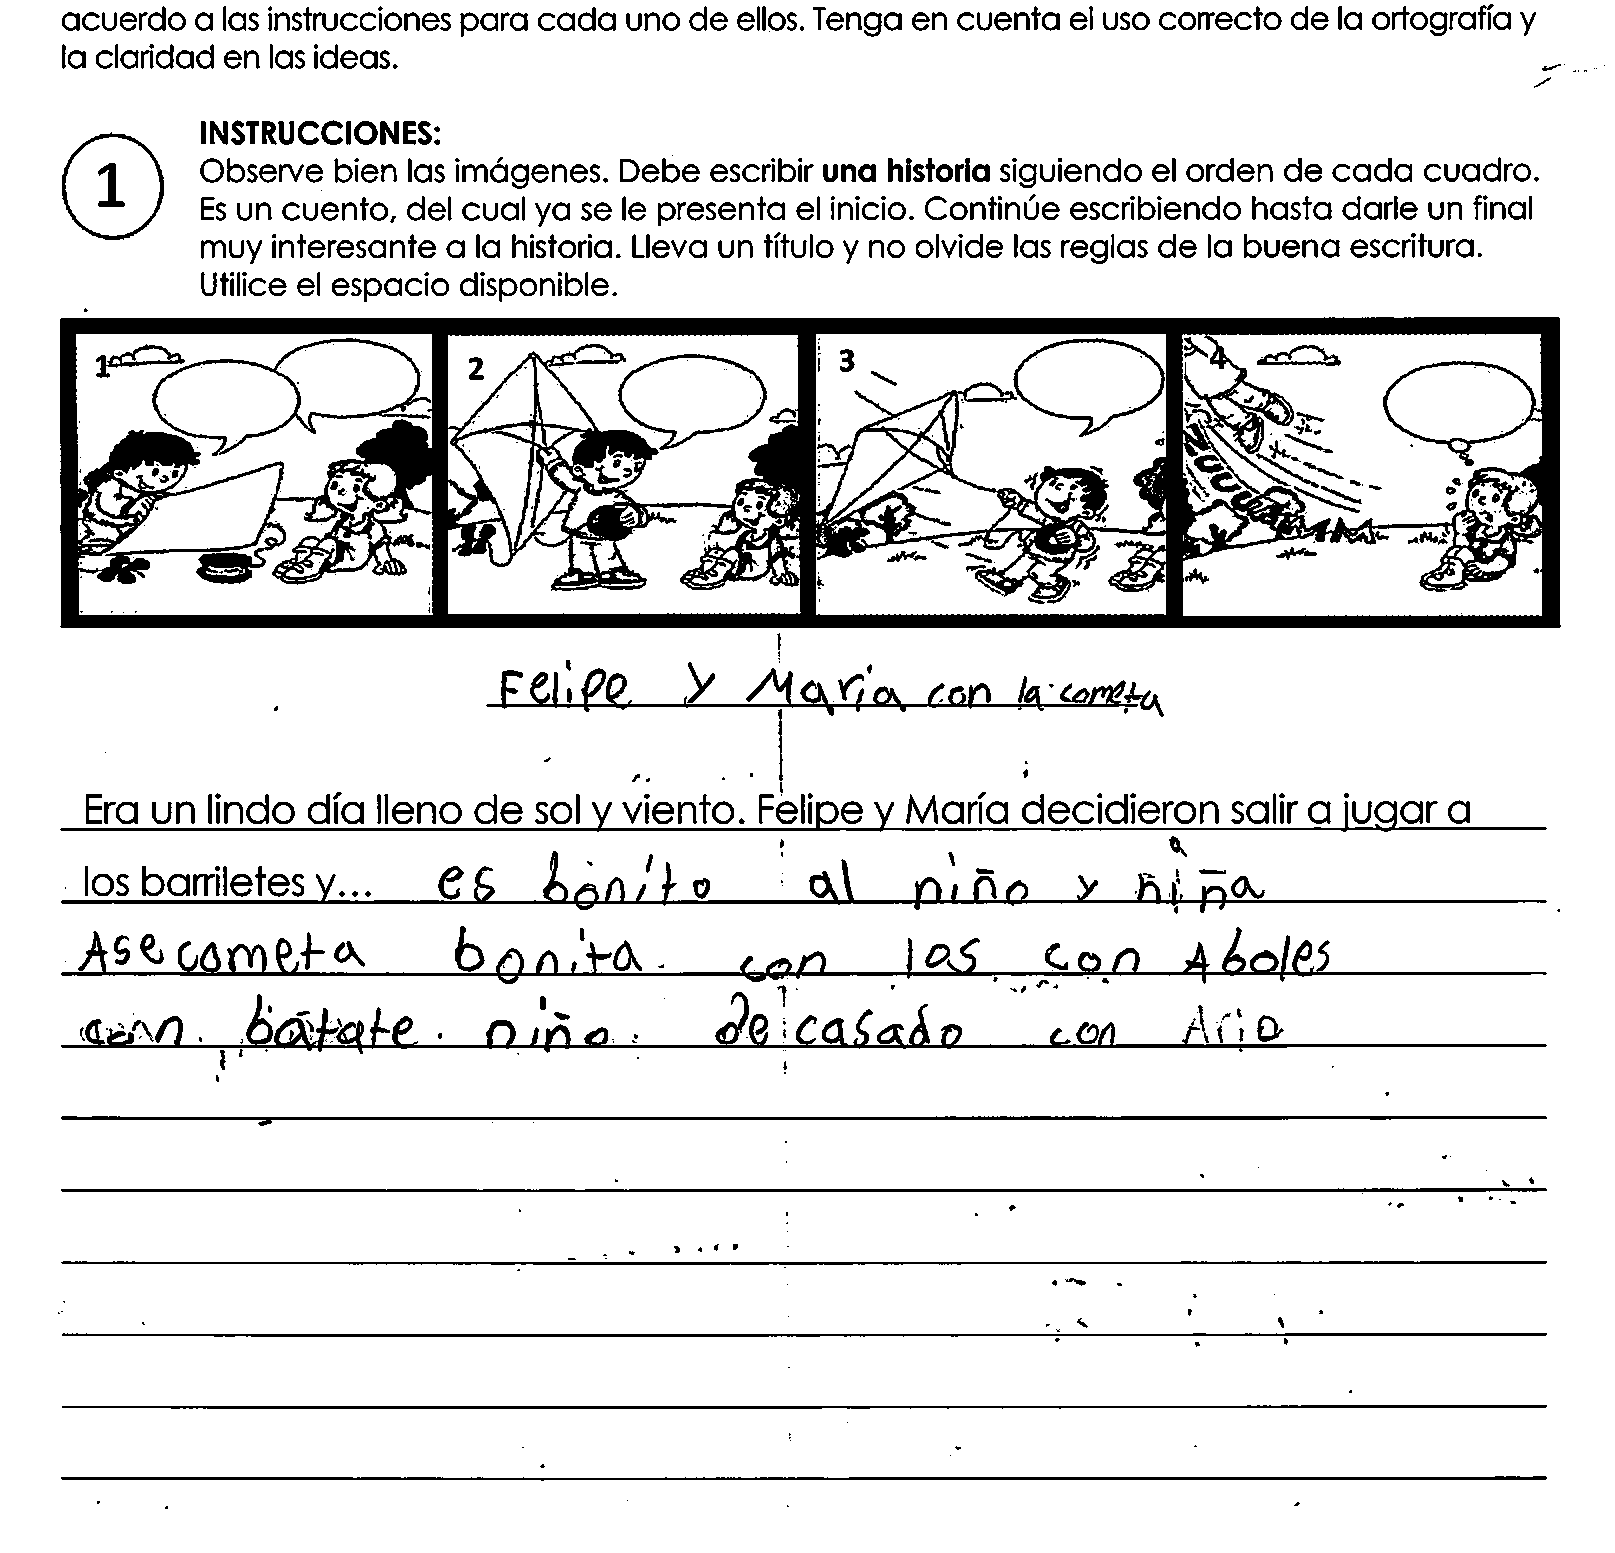 acuerdo a las instrucciones para cada uno de ellos. Tenga en cuenta el uso correcto de la ortografía y
la claridad en las ideas.
1
INSTRUCCIONES:
Observe bien las imágenes. Debe escribir una historia siguiendo el orden de cada cuadro.
Es un cuento, del cual ya se le presenta el inicio. Continúe escribiendo hasta darle un final
muy interesante a la historia. Lleva un título y no olvide las reglas de la buena escritura.
Utilice el espacio disponible.
1 2 3 4
Felipe y Maria con la cometa
Era un lindo día lleno de sol y viento. Felipe y María decidieron salir a jugar a
los barriletes y... es bonito al niño y niña
Ase cometa bonita con los con Aboles
con niño de casado con